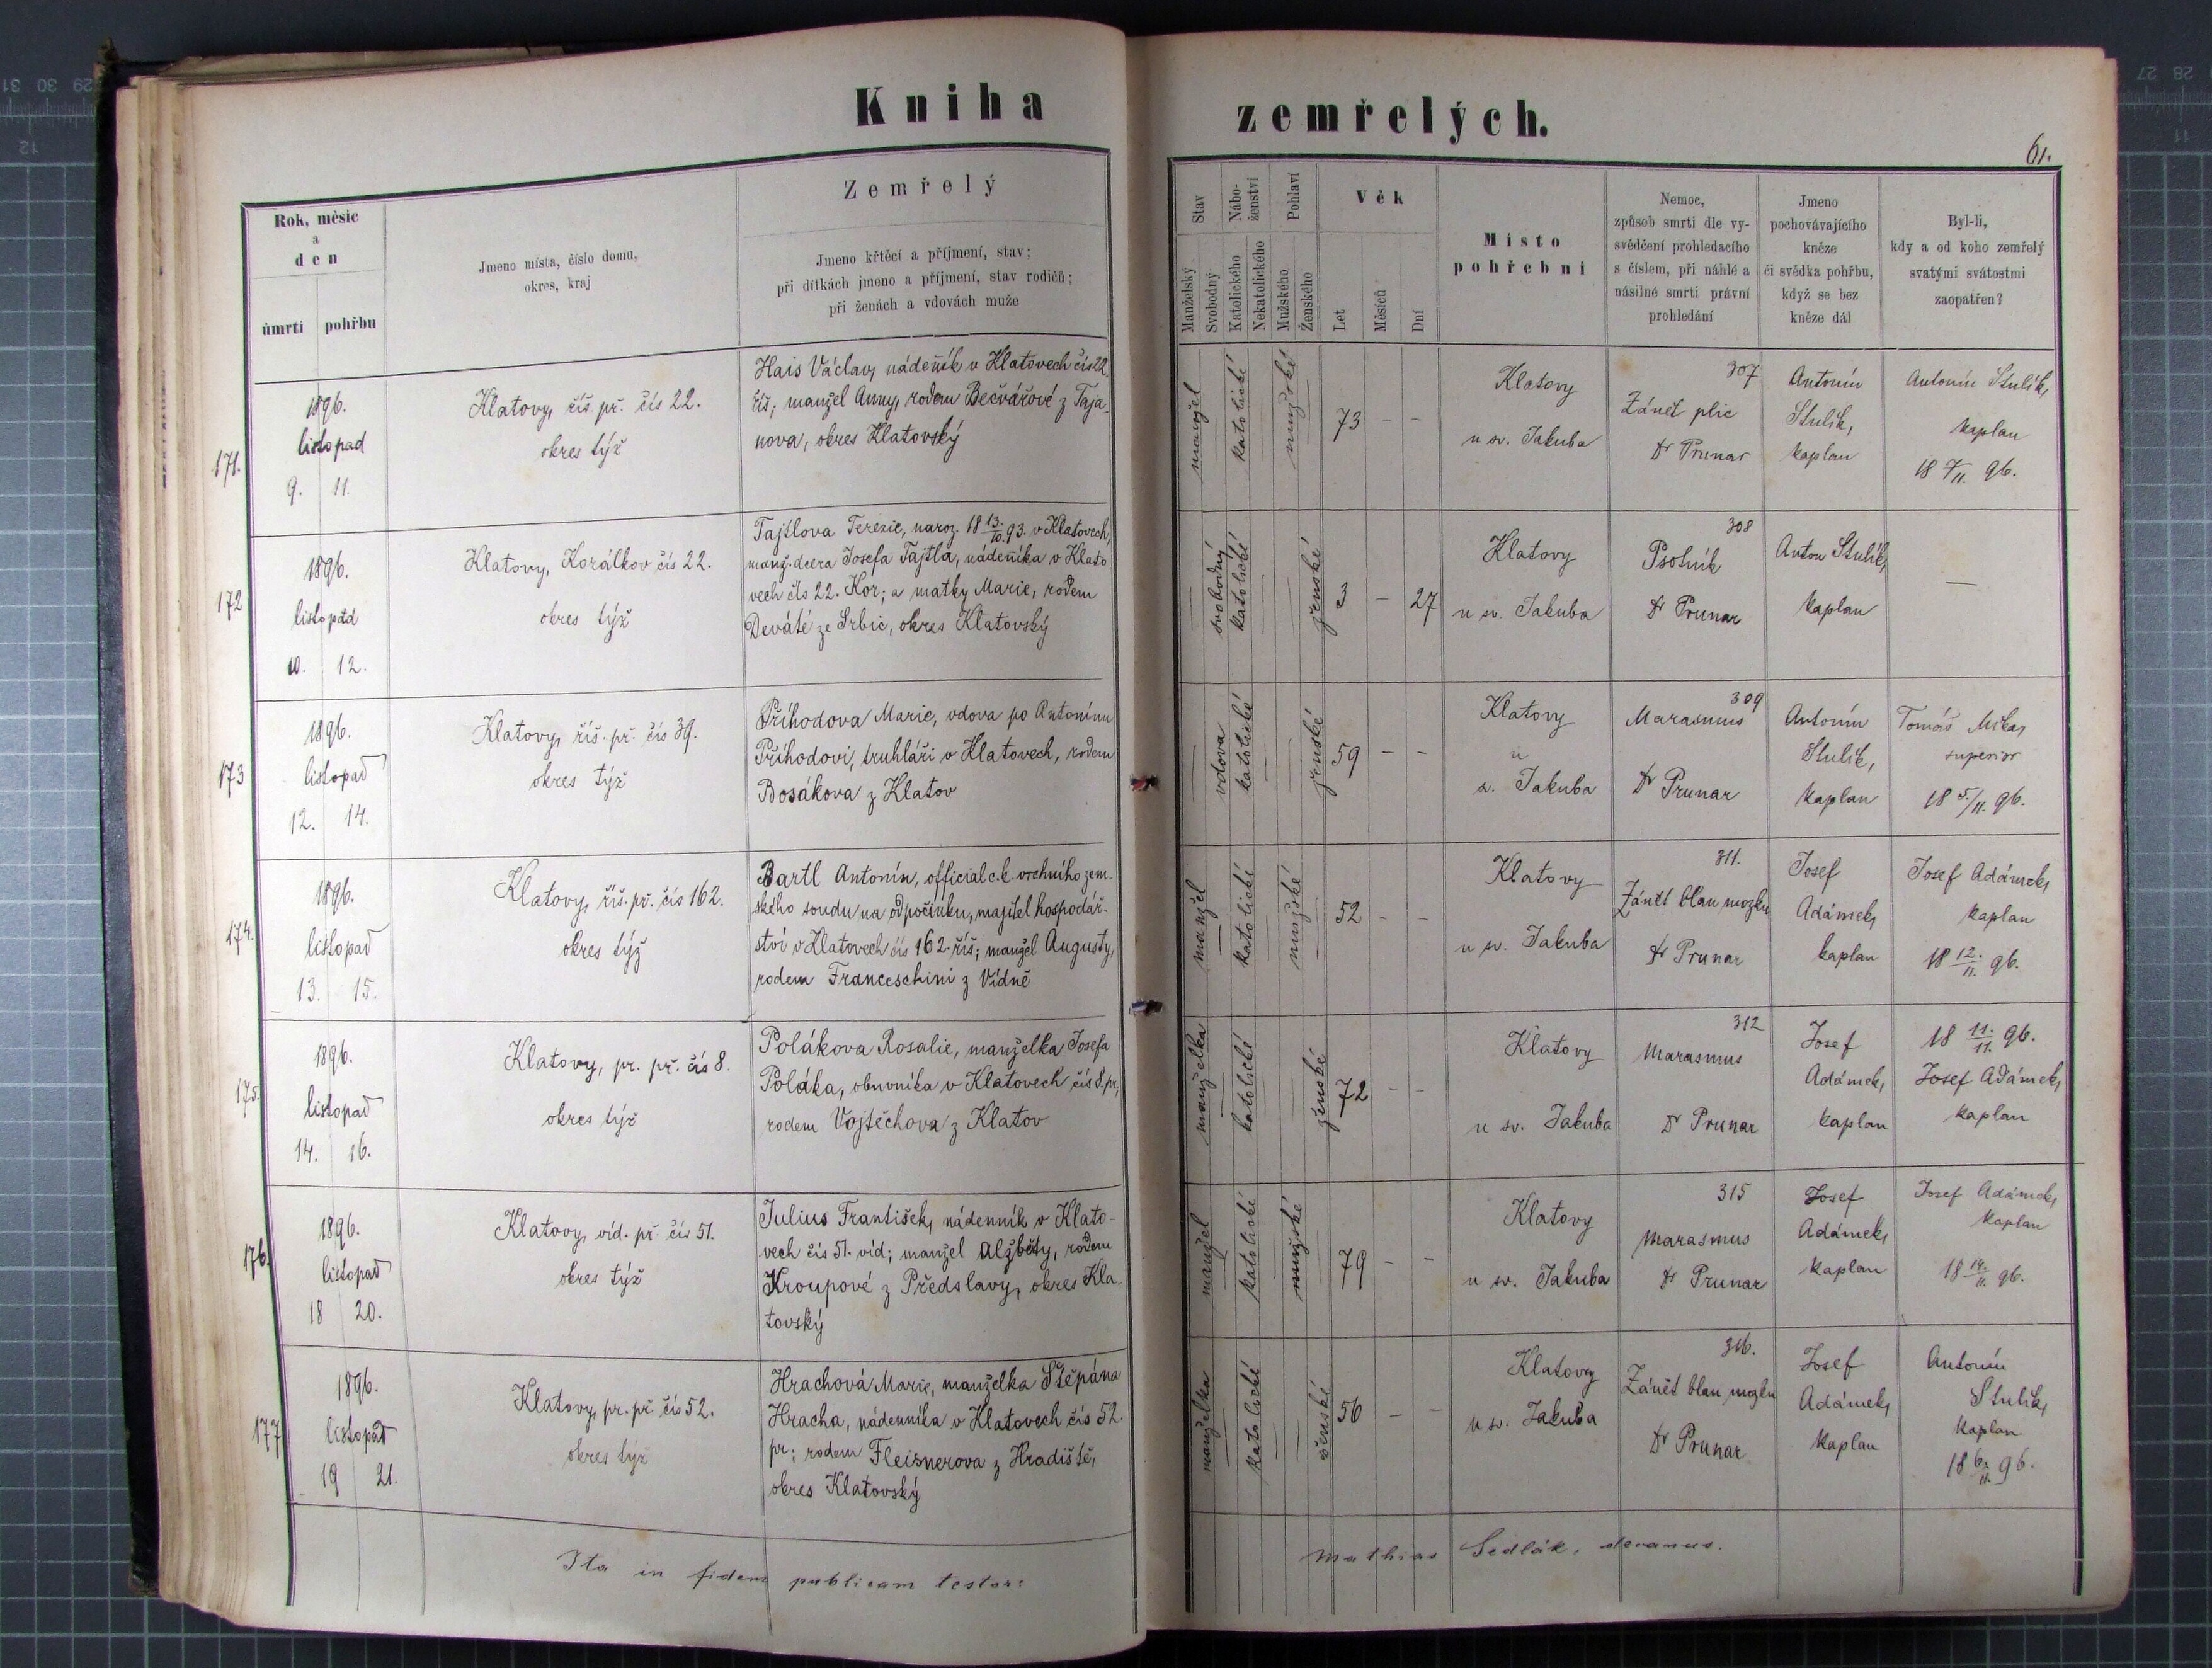 Kniha zemřelých.
61.
Rok, měsíc
a
den
úmrtí pohřbu
Jmeno místa, číslo domu,
okres, kraj
Zemřelý
Jmeno křtěcí a příjmení, stav;
při dítkách jmeno a příjmení, stav rodičů;
při ženách a vdovách muže
Stav
Manželský
Svobodný
Nábo-
ženství
Katolického
Nekatolického
Pohlaví
Mužského
Ženského
Věk
Let
Měsíců
Dní
Místo
pohřební
Nemoc,
způsob smrti dle vy-
svědčení prohledacího
s číslem, při náhlé a
násilné smrti právní
prohledání
Jmeno
pochovávajícího
kněze
či svědka pohřbu,
když se bez
kněze dál
Byl-li,
kdy a od koho zemřelý
svatými svátostmi
zaopatřen?
171.
1896.
listopad
9. 11.
Klatovy, říš. př. čís 22.
okres týž
Hais Václav, nádeník v Klatovech čís 22
říš; manžel Anny, rodem Bečvářové z Taja-
nova, okres Klatovský
manžel
katolické
mužské
73 - -
Klatovy
u sv. Jakuba
307
Zánět plic
Dr Prunar
Antonín
Stulík,
kaplan
Antonín Stulík,
kaplan
18 7/11. 96.
172
1896.
listopad
10. 12.
Klatovy, Korálkov čís 22.
okres týž
Tajtlova Terezie, naroz. 18 13./10. 93. v Klatovech,
manž. dcera Josefa Tajtla, nádeníka v Klato
vech čís 22. Kor; a matky Marie, rodem
Deváté ze Srbic, okres Klatovský
svobodný
katolické
ženské
3 - 27
Klatovy
u sv. Jakuba
308
Psotník
Dr Prunar
Anton Stulík,
kaplan
—
173
1896.
listopad
12. 14.
Klatovy, říš. př. čís 39.
okres týž
Příhodova Marie, vdova po Antonínu
Příhodovi, truhláři v Klatovech, rodem
Bosákova z Klatov
vdova
katolické
ženské
59 - -
Klatovy
u
s. Jakuba
309
Marasmus
Dr Prunar
Antonín
Stulík,
kaplan
Tomáš Mika,
superior
18 5./11. 96.
174.
1896.
listopad
13. 15.
Klatovy, říš. př. čís 162.
okres týž
Bartl Antonín, official c. k. vrchního zem-
ského soudu na odpočinku, majitel hospodář-
ství v Klatovech čís 162. říš; manžel Augusty,
rodem Franceschini z Vídně
manžel
katolické
mužské
52 - -
Klatovy
u sv. Jakuba
311.
Zánět blan mozku
Dr Prunar
Josef
Adámek,
kaplan
Josef Adámek,
kaplan
18 12./11. 96.
175.
1896.
listopad
14. 16.
Klatovy, pr. př. čís 8.
okres týž
Polákova Rosalie, manželka Josefa
Poláka, obuvníka v Klatovech čís 8. pr,
rodem Vojtěchova z Klatov
manželka
katolické
ženské
72 - -
Klatovy
u sv. Jakuba
312
Marasmus
Dr Prunar
Josef
Adámek,
kaplan
18 11./11. 96.
Josef Adámek,
kaplan
176.
1896.
listopad
18 20.
Klatovy, víd. př. čís 51.
okres týž
Julius František, nádenník v Klato-
vech čís 51. víd; manžel Alžběty, rodem
Kroupové z Předslavy, okres Kla-
tovský
manžel
katolické
mužské
79 - -
Klatovy
u sv. Jakuba
315
Marasmus
Dr Prunar
Josef
Adámek,
kaplan
Josef Adámek,
kaplan
18 14./11. 96.
177
1896.
listopad
19 21.
Klatovy, pr. př. čís 52.
okres týž
Hrachová Marie, manželka Štěpána
Hracha, nádenníka v Klatovech čís 52.
pr; rodem Fleisnerova z Hradiště,
okres Klatovský
manželka
katolické
ženské
56 - -
Klatovy
u sv. Jakuba
316.
Zánět blan mozku
Dr Prunar
Josef
Adámek,
kaplan
Antonín
Stulík,
kaplan
18 6./11. 96.
Ita in fidem publicam testor: Mathias Sedlák, decanus.